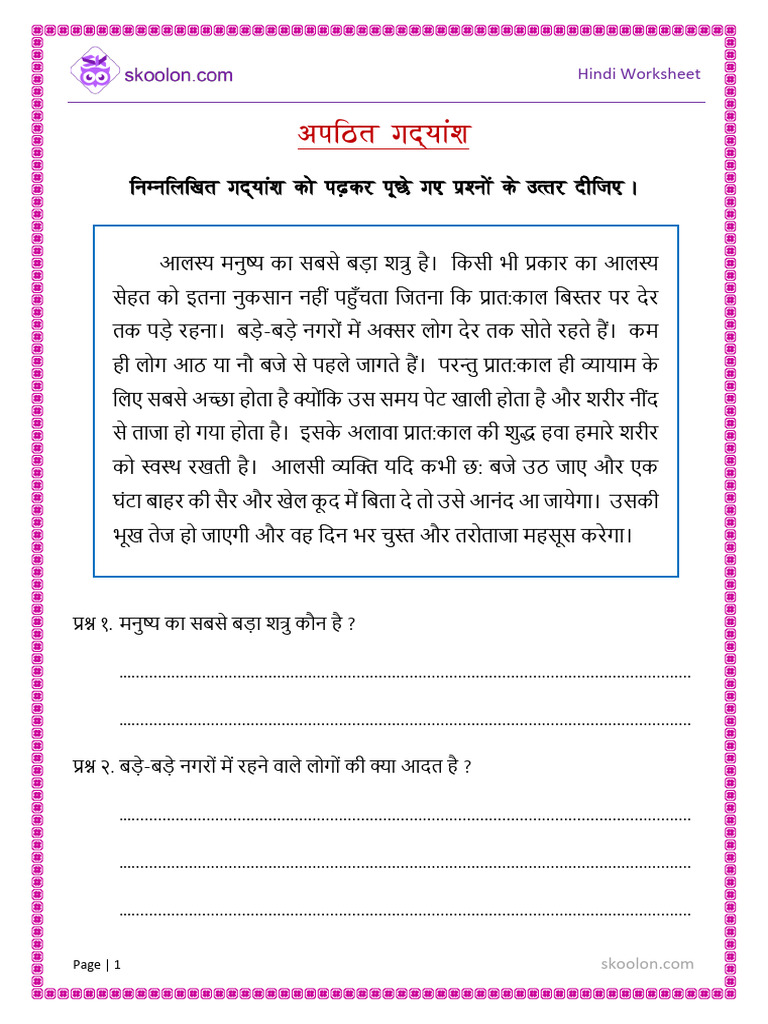 skoolon.com
Hindi Worksheet
अपठित गद्यांश
निम्नलिखित गद्यांश को पढ़कर पूछे गए प्रश्नों के उत्तर दीजिए ।
आलस्य मनुष्य का सबसे बड़ा शत्रु है। किसी भी प्रकार का आलस्य
सेहत को इतना नुकसान नहीं पहुँचता जितना कि प्रात:काल बिस्तर पर देर
तक पड़े रहना। बड़े-बड़े नगरों में अक्सर लोग देर तक सोते रहते हैं। कम
ही लोग आठ या नौ बजे से पहले जागते हैं। परन्तु प्रात:काल ही व्यायाम के
लिए सबसे अच्छा होता है क्योंकि उस समय पेट खाली होता है और शरीर नींद
से ताजा हो गया होता है। इसके अलावा प्रात:काल की शुद्ध हवा हमारे शरीर
को स्वस्थ रखती है। आलसी व्यक्ति यदि कभी छ: बजे उठ जाए और एक
घंटा बाहर की सैर और खेल कूद में बिता दे तो उसे आनंद आ जायेगा। उसकी
भूख तेज हो जाएगी और वह दिन भर चुस्त और तरोताजा महसूस करेगा।
प्रश्न १. मनुष्य का सबसे बड़ा शत्रु कौन है ?
प्रश्न २. बड़े-बड़े नगरों में रहने वाले लोगों की क्या आदत है ?
Page | 1
skoolon.com